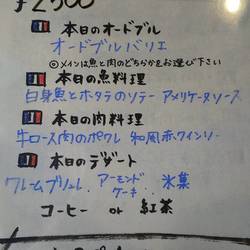 ¥2500
本日のオードブル
オードブルバリエ
◎メインは魚と肉のどちらかをお選び下さい
本日の魚料理
白身魚とホタテのソテー アメリケーヌソース
本日の肉料理
牛ロース肉のポワレ 和風赤ワインソー
本日のデザート
クレームブリュレ. アーモンドケーキ. 氷菓
コーヒー or 紅茶